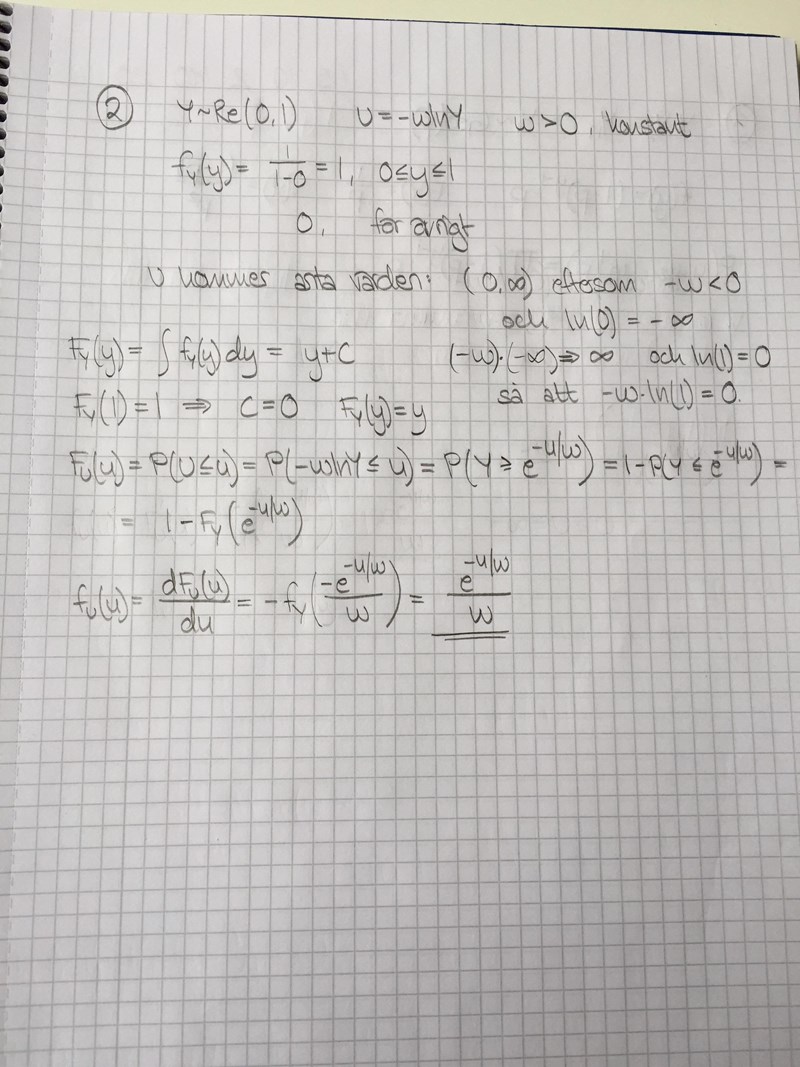 ② Y~Re(0,1) U=-wlnY w>0, konstant
f_Y(y)= 1/(1-0) =1, 0≤y≤1
0, för övrigt
U kommer anta värden: (0,∞) eftersom -w<0
och ln(0) = -∞
F_Y(y)= ∫ f_Y(y)dy = y+C (-w)·(-∞)⇒∞ och ln(1)=0
F_Y(1)=1 ⇒ C=0 F_Y(y)=y så att -w·ln(1)=0.
F_U(u)=P(U≤u)=P(-wlnY≤u)=P(Y≥e^{-u/w})=1-P(Y≤e^{-u/w})=
= 1-F_Y(e^{-u/w})
f_U(u)= dF_U(u)/du = -f_Y(-e^{-u/w}/w) = e^{-u/w}/w